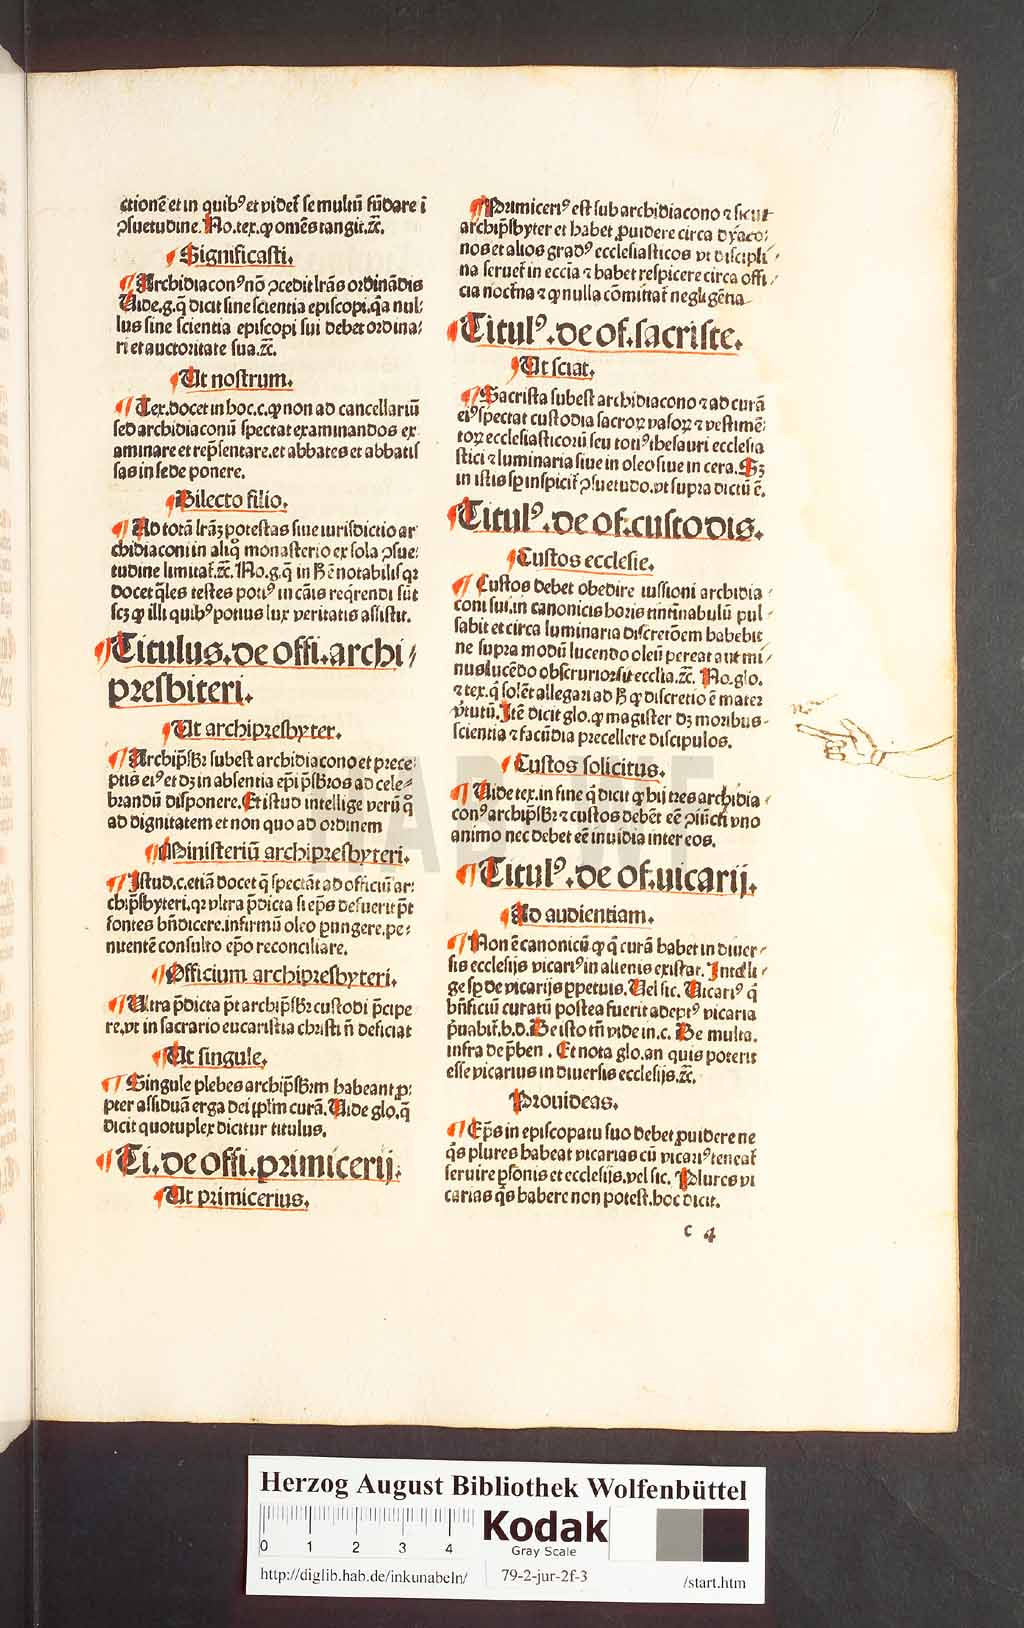 ctionē et in quibꝰ et videt̄ se multū fūdare ī
ↄsuetudine. No.tex.ꝙ omēs tangit.⁊c̄.
Significasti.
Archidiaconꝰ nō ↄcedit lr̄as ordinādis
Vide.g.q̄ dicit sine scientia episcopi.q̄a nul⸗
lus sine scientia episcopi sui debet ordina⸗
ri et auctoritate sua.⁊c̄.
Ut nostrum.
Tex.docet in hoc.c.ꝙ non ad cancellariū
sed archidiaconū spectat examinandos ex
aminare et rep̄sentare.et abbates et abbatis
sas in sede ponere.
Dilecto filio.
Ad totā lr̄aꝫ potestas siue iurisdictio ar
chidiaconi in aliq̊ monasterio ex sola ↄsue⸗
tudine limitat̄.⁊c̄. No.g.q̄ in h̄ ē notabilis qꝛ
docet q̄les testes potiꝰ in cāis req̄rendi sūt
scꝫ ꝙ illi quibꝰ potius lux veritatis assistit.
Titulus.de offi.archi⸗
presbiteri.
Ut archipresbyter.
Archip̄sbr̄ subest archidiacono et prece⸗
ptis eiꝰ et dꝫ in absentia ep̄i p̄sbr̄os ad cele⸗
brandū disponere. Et istud intellige verū q̄
ad dignitatem et non quo ad ordinem
Ministeriū archipresbyteri.
Istud.c.etiā docet q̄ spectāt ad officiū ar⸗
chip̄sbyteri.qꝛ vltra p̄dicta si ep̄s defuerit p̄t
fontes bn̄dicere.infirmū oleo ꝑungere.pe⸗
nitentē consulto ep̄o reconciliare.
Officium archipresbyteri.
Ultra p̄dicta p̄t archip̄sbr̄ custodi p̄cipe
re.vt in sacrario eucaristia christi n̄ deficiat
Ut singule.
Singule plebes archip̄sbr̄m habeant ꝓ⸗
pter assiduā erga dei ip̄lm curā. Vide glo.q̄
dicit quotuplex dicitur titulus.
Ti.de offi.primicerij.
Ut primicerius.
Primiceriꝰ est sub archidiacono ⁊ sicut
archip̄sbyter et habet ꝓuidere circa dyaco⸗
nos et alios gradꝰ ecclesiasticos vt discipli⸗
na seruet̄ in eccl̄ia ⁊ habet respicere circa offi⸗
cia noct̄na ⁊ ꝙ nulla cōmittat̄ negligētia
Titulꝰ.de of.sacriste.
Ut sciat.
Sacrista subest archidiacono ⁊ ad curā
eiꝰ spectat custodia sacroꝝ vasoꝝ ⁊ vestimē⸗
toꝝ ecclesiasticorū seu totiꝰ thesauri ecclesia
stici ⁊ luminaria siue in oleo siue in cera. Sꝫ
in istis sp̄ inspicit̄ ↄsuetudo.vt supra dictū ē.
Titulꝰ.de of.custodis.
Custos ecclesie.
Custos debet obedire iussioni archidia⸗
coni sui.in canonicis horis tintinabulū pul⸗
sabit et circa luminaria discretōem habebit
ne supra modū lucendo oleū pereat aut mi⸗
nus lucēdo obscurior sit eccl̄ia.⁊c̄. No.glo.
⁊ tex.q̄ solēt allegari ad h̄ ꝙ discretio ē mater
v̄tutū. Itē dicit glo.ꝙ magister dꝫ moribus
scientia ⁊ facūdia precellere discipulos.
Custos solicitus.
Vide tex.in fine q̄ dicit ꝙ hij tres archidia⸗
conꝰ archip̄sbr̄ ⁊ custos debēt eē ↄiūcti vno
animo nec debet eē inuidia inter eos.
Titulꝰ.de of.vicarij.
Ad audientiam.
Non ē canonicū ꝙ q̄ curā habet in diuer⸗
sis ecclesijs vicariꝰ in alienis existat. Intelli⸗
ge sp̄ de vicarijs ꝑpetuis. Vel sic. Vicariꝰ q̄
bn̄ficiū curatū postea fuerit adeptꝰ vicaria
p̄uabit̄.h.d. De isto tn̄ vide in.c. De multa.
infra de p̄ben. Et nota glo.an quis poterit
esse vicarius in diuersis ecclesijs.⁊c̄.
Prouideas.
Ep̄s in episcopatu suo debet ꝓuidere ne
q̇s plures habeat vicarias cū vicariꝰ teneat̄
seruire ꝑsonis et ecclesijs.vel sic. Plures vi
carias q̇s habere non potest.hoc dicit.
c 4
HAB WF
Herzog August Bibliothek Wolfenbüttel
0 1 2 3 4
Kodak
Gray Scale
http://diglib.hab.de/inkunabeln/ 79-2-jur-2f-3 /start.htm